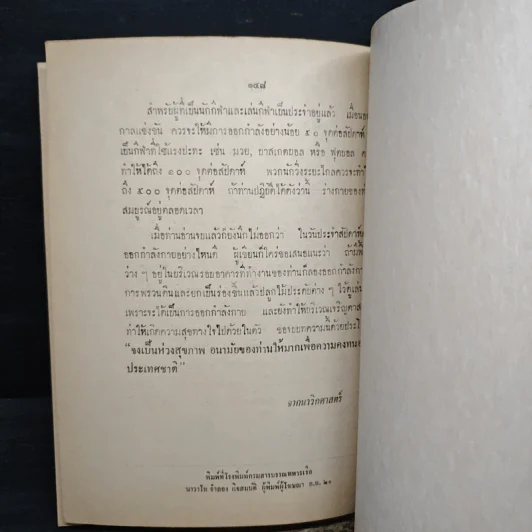 ๑๔๘
สำหรับผู้ที่เป็นนักกีฬาและเล่นกีฬาเป็นประจำอยู่แล้ว เมื่อ
กาลแข่งขัน ควรจะให้มีการออกกำลังอย่างน้อย ๕๐ จุดต่อสัปดาห์
เป็นกีฬาที่ใช้แรงปะทะ เช่น มวย, บาสเกตบอล หรือ ฟุตบอล
ทำให้ได้ถึง ๑๐๐ จุดต่อสัปดาห์ พวกนักวิ่งระยะไกลควรจะทำ
ถึง ๕๐๐ จุดต่อสัปดาห์ ถ้าท่านปฏิบัติได้ดังว่านี้ ร่างกายของ
สมบูรณ์อยู่ตลอดเวลา
เมื่อท่านอ่านจบแล้วก็ยังนึกไม่ออกว่า ในวันประจำสัปดาห์
ออกกำลังกายอย่างไหนดี ผู้เขียนก็ใคร่ขอเสนอแนะว่า ถ้ามี
ว่าง ๆ อยู่ในบริเวณรอบอาคารที่ทำงานของท่านก็ลองออกกำลัง
การพรวนดินและยกเป็นร่องขึ้นแล้วปลูกไม้ประดับต่าง ๆ ไว้
เพราะจะได้เป็นการออกกำลังกาย และยังทำให้บริเวณเจริญตา
ทำให้เกิดความสุขทางใจไปด้วยในตัว ขอจบบทความนี้ด้วย
"จงเป็นห่วงสุขภาพ อนามัยของท่านให้มากเพื่อความคงทน
ประเทศชาติ"
จากนาวิกศาสตร์
พิมพ์ที่โรงพิมพ์กรมสารบรรณทหารเรือ
นาวาโท จำลอง กิจสมบัติ ผู้พิมพ์ผู้โฆษณา ๒๐